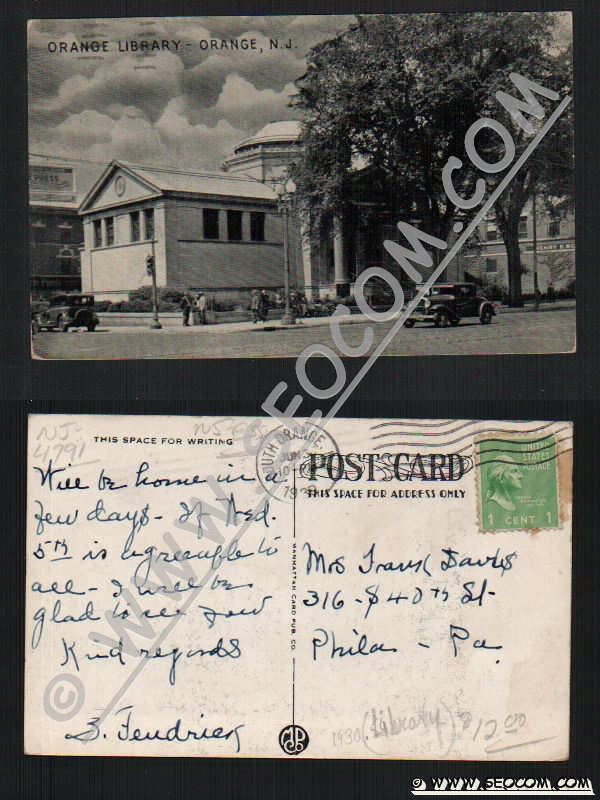 ORANGE LIBRARY - ORANGE, N.J.
© WWW.SEOCOM.COM
NJ-
4791
THIS SPACE FOR WRITING
SOUTH ORANGE
JUN
POST CARD
THIS SPACE FOR ADDRESS ONLY
UNITED
STATES
POSTAGE
1 CENT 1
Will be home in a
few days - If Wed.
5th is agreeable to
all - I will be
glad to see you
Kind regards
MANHATTAN CARD PUB. CO.
Mrs Frank Davis
316 - S 40th St -
Phila - Pa.
1930
(Library)
$12.00
© WWW.SEOCOM.COM